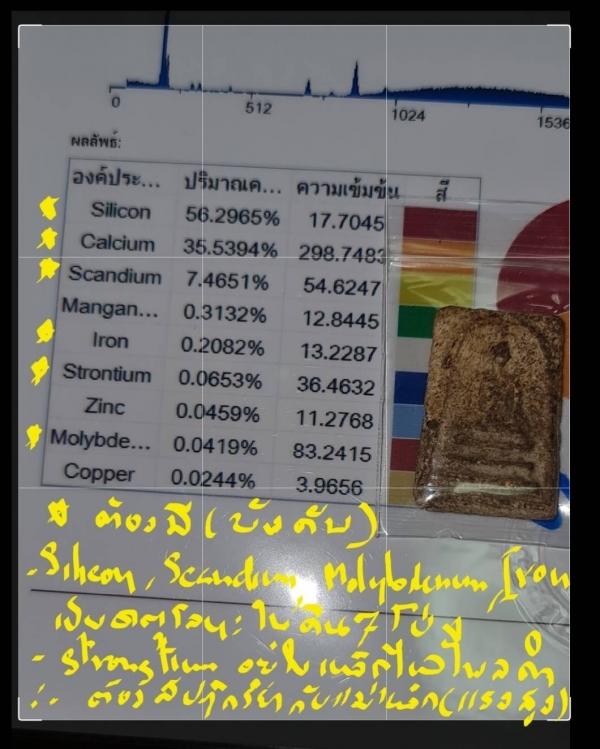 0 512 1024 1536
ผลลัพธ์:
องค์ประ... ปริมาณค... ความเข้มข้น สี
Silicon 56.2965% 17.7045
Calcium 35.5394% 298.7483
Scandium 7.4651% 54.6247
Mangan... 0.3132% 12.8445
Iron 0.2082% 13.2287
Strontium 0.0653% 36.4632
Zinc 0.0459% 11.2768
Molybde... 0.0419% 83.2415
Copper 0.0244% 3.9656
ต้องมี (บังคับ)
- Silicon, Scandium Molybdenum, Iron
เป็น ใน ดิน 7 โป่ง
- Strontium อยู่ในเหล็กไหลไพลดำ
∴ ต้องมีปฏิกริยากับแม่เหล็ก (แรงสูง)